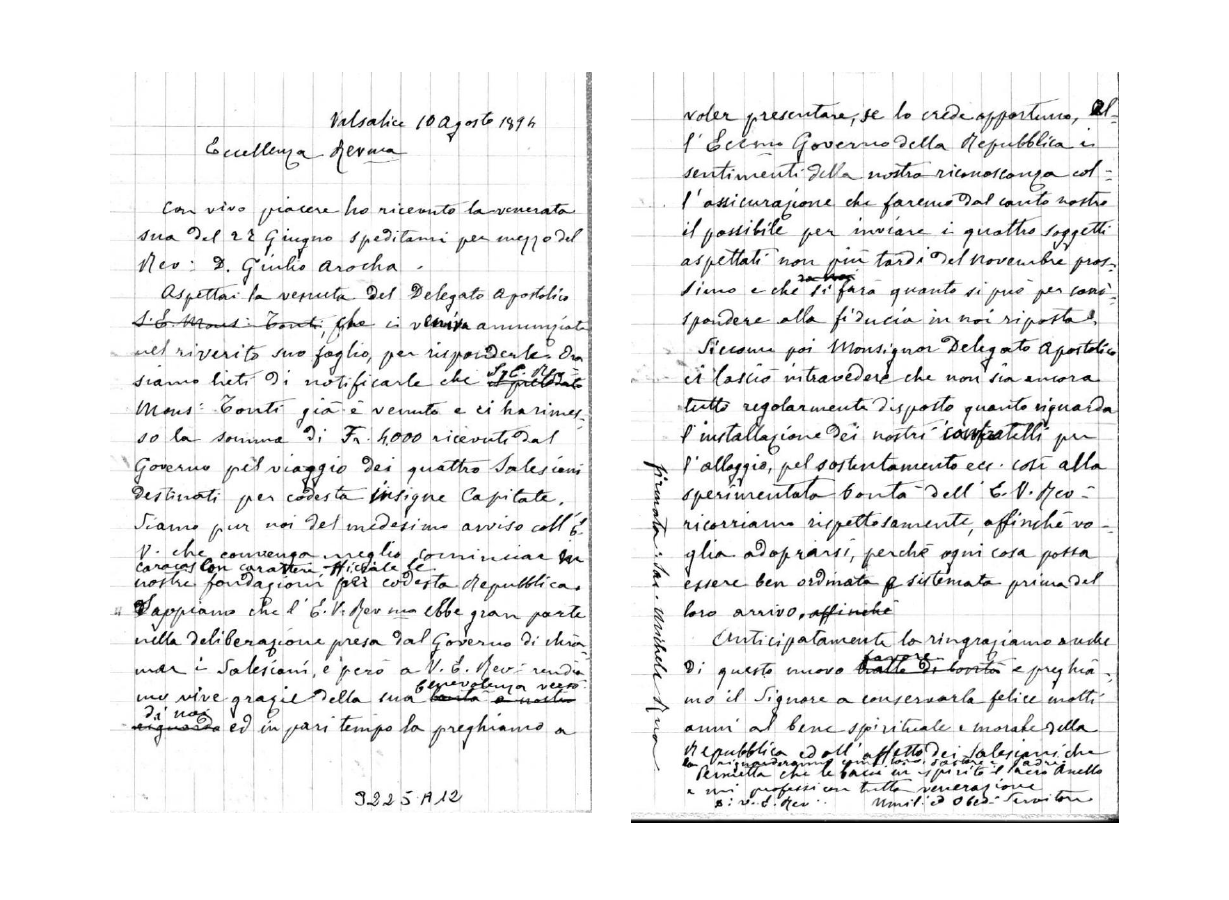 Valsalice 10 Agosto 1894
Eccellenza Revma
Con vivo piacere ho ricevuto la venerata
sua del 22 Giugno speditami per mezzo del
Rev: D. Giulio Arocha.
Aspettai la venuta del Delegato Apostolico
S. E. Mons: Tonti, che ci veniva annunziata
nel riverito suo foglio, per risponderle. Ora
siamo lieti di notificarle che S. E. Rev.
Mons: Tonti già è venuto e ci ha rimes-
so la somma di Fr. 4,000 ricevuti dal
Governo pel viaggio dei quattro Salesiani
destinati per codesta insigne Capitale.
Siamo pur noi del medesimo avviso coll'E.
V. che convenga meglio cominciar in
Caracas con carattere officiale le
nostre fondazioni per codesta Repubblica.
Sappiamo che l'E. V. Revma ebbe gran parte
nella deliberazione presa dal Governo di chia-
mar i Salesiani, e però a V. E. Rev: rendia-
mo vive grazie della sua bontà a nostro
benevolenza verso
di noi
riguardo ed in pari tempo la preghiamo a
9225 A12
voler presentare, se lo crede opportuno, al-
l'Ecemo Governo della Repubblica i
sentimenti della nostra riconoscenza col-
l'assicurazione che faremo dal canto nostro
il possibile per inviare i quattro soggetti
aspettati non più tardi del Novembre pros-
simo e che si farà quanto si può per corri-
spondere alla fiducia in noi riposta.
Siccome poi Monsignor Delegato Apostolico
ci lasciò intravedere che non sia ancora
tutto regolarmente disposto quanto riguarda
l'installazione dei nostri confratelli per
l'alloggio, pel sostentamento ecc. così alla
sperimentata bontà dell'E. V. Rev-
ricorriamo rispettosamente, affinchè vo-
glia adoprarsi, perchè ogni cosa possa
essere ben ordinata e sistemata prima del
loro arrivo, affinchè
Anticipatamente la ringraziamo anche
favore
di questo nuovo tratto di bontà e preghia-
mo il Signore a conservarla felice molti
anni al bene spirituale e morale della
Repubblica ed all'affetto dei Salesiani che
la riguarderanno come loro Pastore e padre
Permetta che le baci in ispirito il sacro Anello
e mi professi con tutta venerazione
Di V. E. Rev: Umil: ed Obed: Servitore
firmato: Sac. Michele Rua